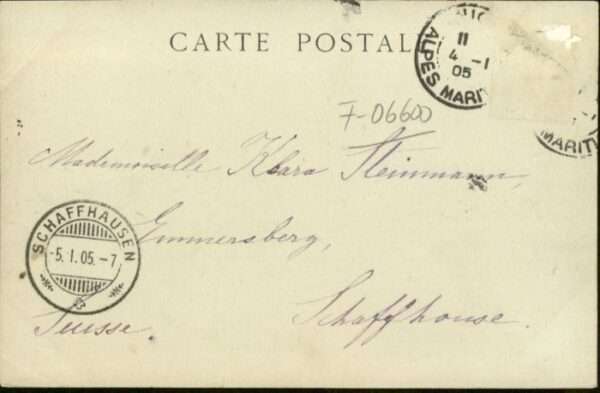 CARTE POSTAL
11
4 -1
05
ALPES MARIT
MARITI
F-06600
Mademoiselle Klara Steinmann,
SCHAFFHAUSEN
-5. I. 05. -7
Emmersberg,
Schaffhouse.
Suisse.